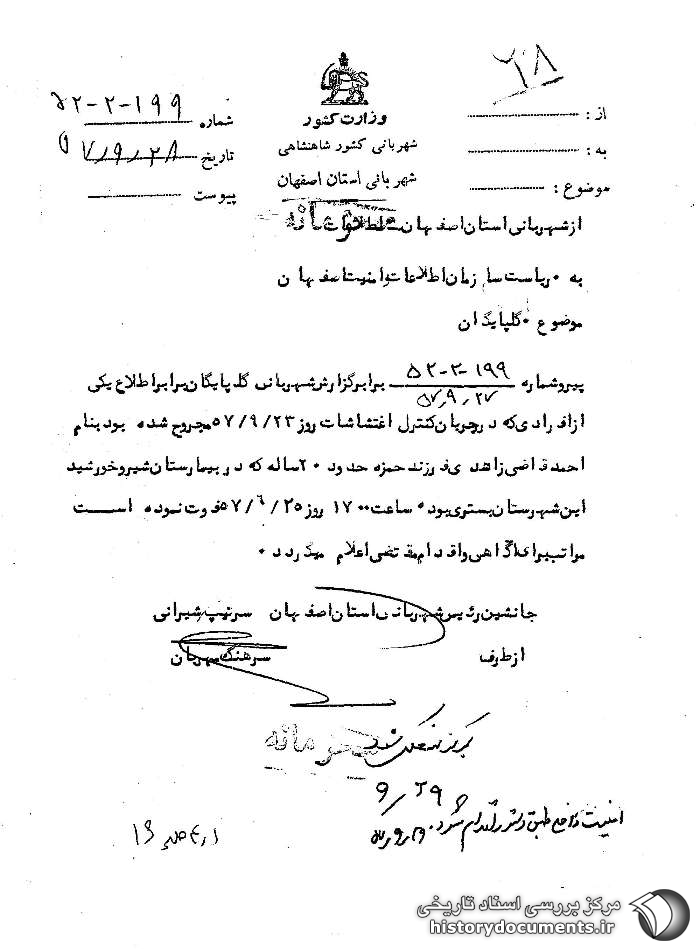 ۲۸
وزارت کشور
شهربانی کشور شاهنشاهی
شهربانی استان اصفهان
از :
به :
موضوع :
شماره ۵۲-۲-۱۹۹
تاریخ ۵۷/۹/۲۸
پیوست
محرمانه
از شهربانی استان اصفهان اطلاعات
به ۰ ریاست سازمان اطلاعات و امنیت اصفهان
موضوع ۰ گلپایگان
پیرو شماره ۵۲-۲-۱۹۹ برابر گزارش شهربانی گلپایگان برابر اطلاع یکی
۵۷/۹/۲۷
از افرادی که در جریان کنترل اغتشاشات روز ۵۷/۹/۲۳ مجروح شده بود بنام
احمد قاضی زاهدی فرزند حمزه حدود ۲۰ ساله که در بیمارستان شیر و خورشید
این شهرستان بستری بوده ساعت ۱۷۰۰ روز ۵۷/۶/۲۵ فوت نموده است
مراتب برای آگاهی و اقدام مقتضی اعلام میگردد ۰
جانشین رئیس شهربانی استان اصفهان سرتیپ شیرانی
از طرف سرهنگ مهربان
بمرکز منعکس شد
محرمانه
۹/۲۹
مرکز بررسی اسناد تاریخی
historydocuments.ir